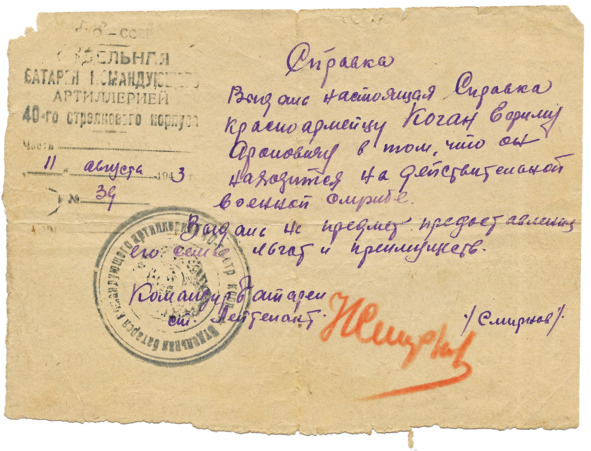 НКО - СССР
ОТДЕЛЬНАЯ
БАТАРЕЯ КОМАНДУЮЩЕГО
АРТИЛЛЕРИЕЙ
40-го стрелкового корпуса
Часть
11 августа 1943 г.
№ 39
Справка
Выдана настоящая Справка
красноармейцу Коган Ефиму
Ароновичу в том, что он
находится на действительной
военной службе.
Выдана на предмет предоставления
его семье льгот и преимуществ.
Командир батареи
ст. Лейтенант.
/Смирнов/.
НСмирнов
Отдельная батарея командующего артиллерией 40 стр. корп.